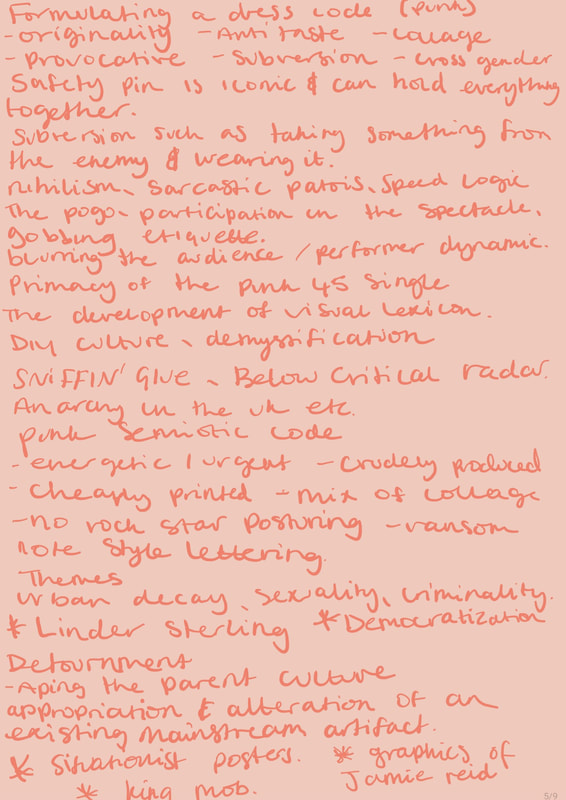 Formulating a dress code (punk)
- originality - Anti taste - collage
- provocative - subversion - cross gender
Safety pin is iconic & can hold everything
together.
Subversion such as taking something from
the enemy & wearing it.
nihilism, sarcastic patois, speed logic
The pogo- participation in the spectacle,
gobbing etiquette.
blurring the audience / performer dynamic.
Primacy of the punk 45 single
The development of visual lexicon.
DIY culture, demyssification
SNIFFIN' GLUE, Below critical radar.
Anarchy in the uk etc.
punk semiotic code
- energetic / urgent - crudely produced
- cheaply printed - mix of collage
- no rock star posturing - ransom
note style lettering.
Themes
urban decay, sexuality, criminality.
* Linder Sterling * Democratization
Detournment
- Aping the parent culture
appropriation & alteration of an
existing mainstream artifact.
* situationist posters. * graphics of
Jamie reid
* king mob.
5/9